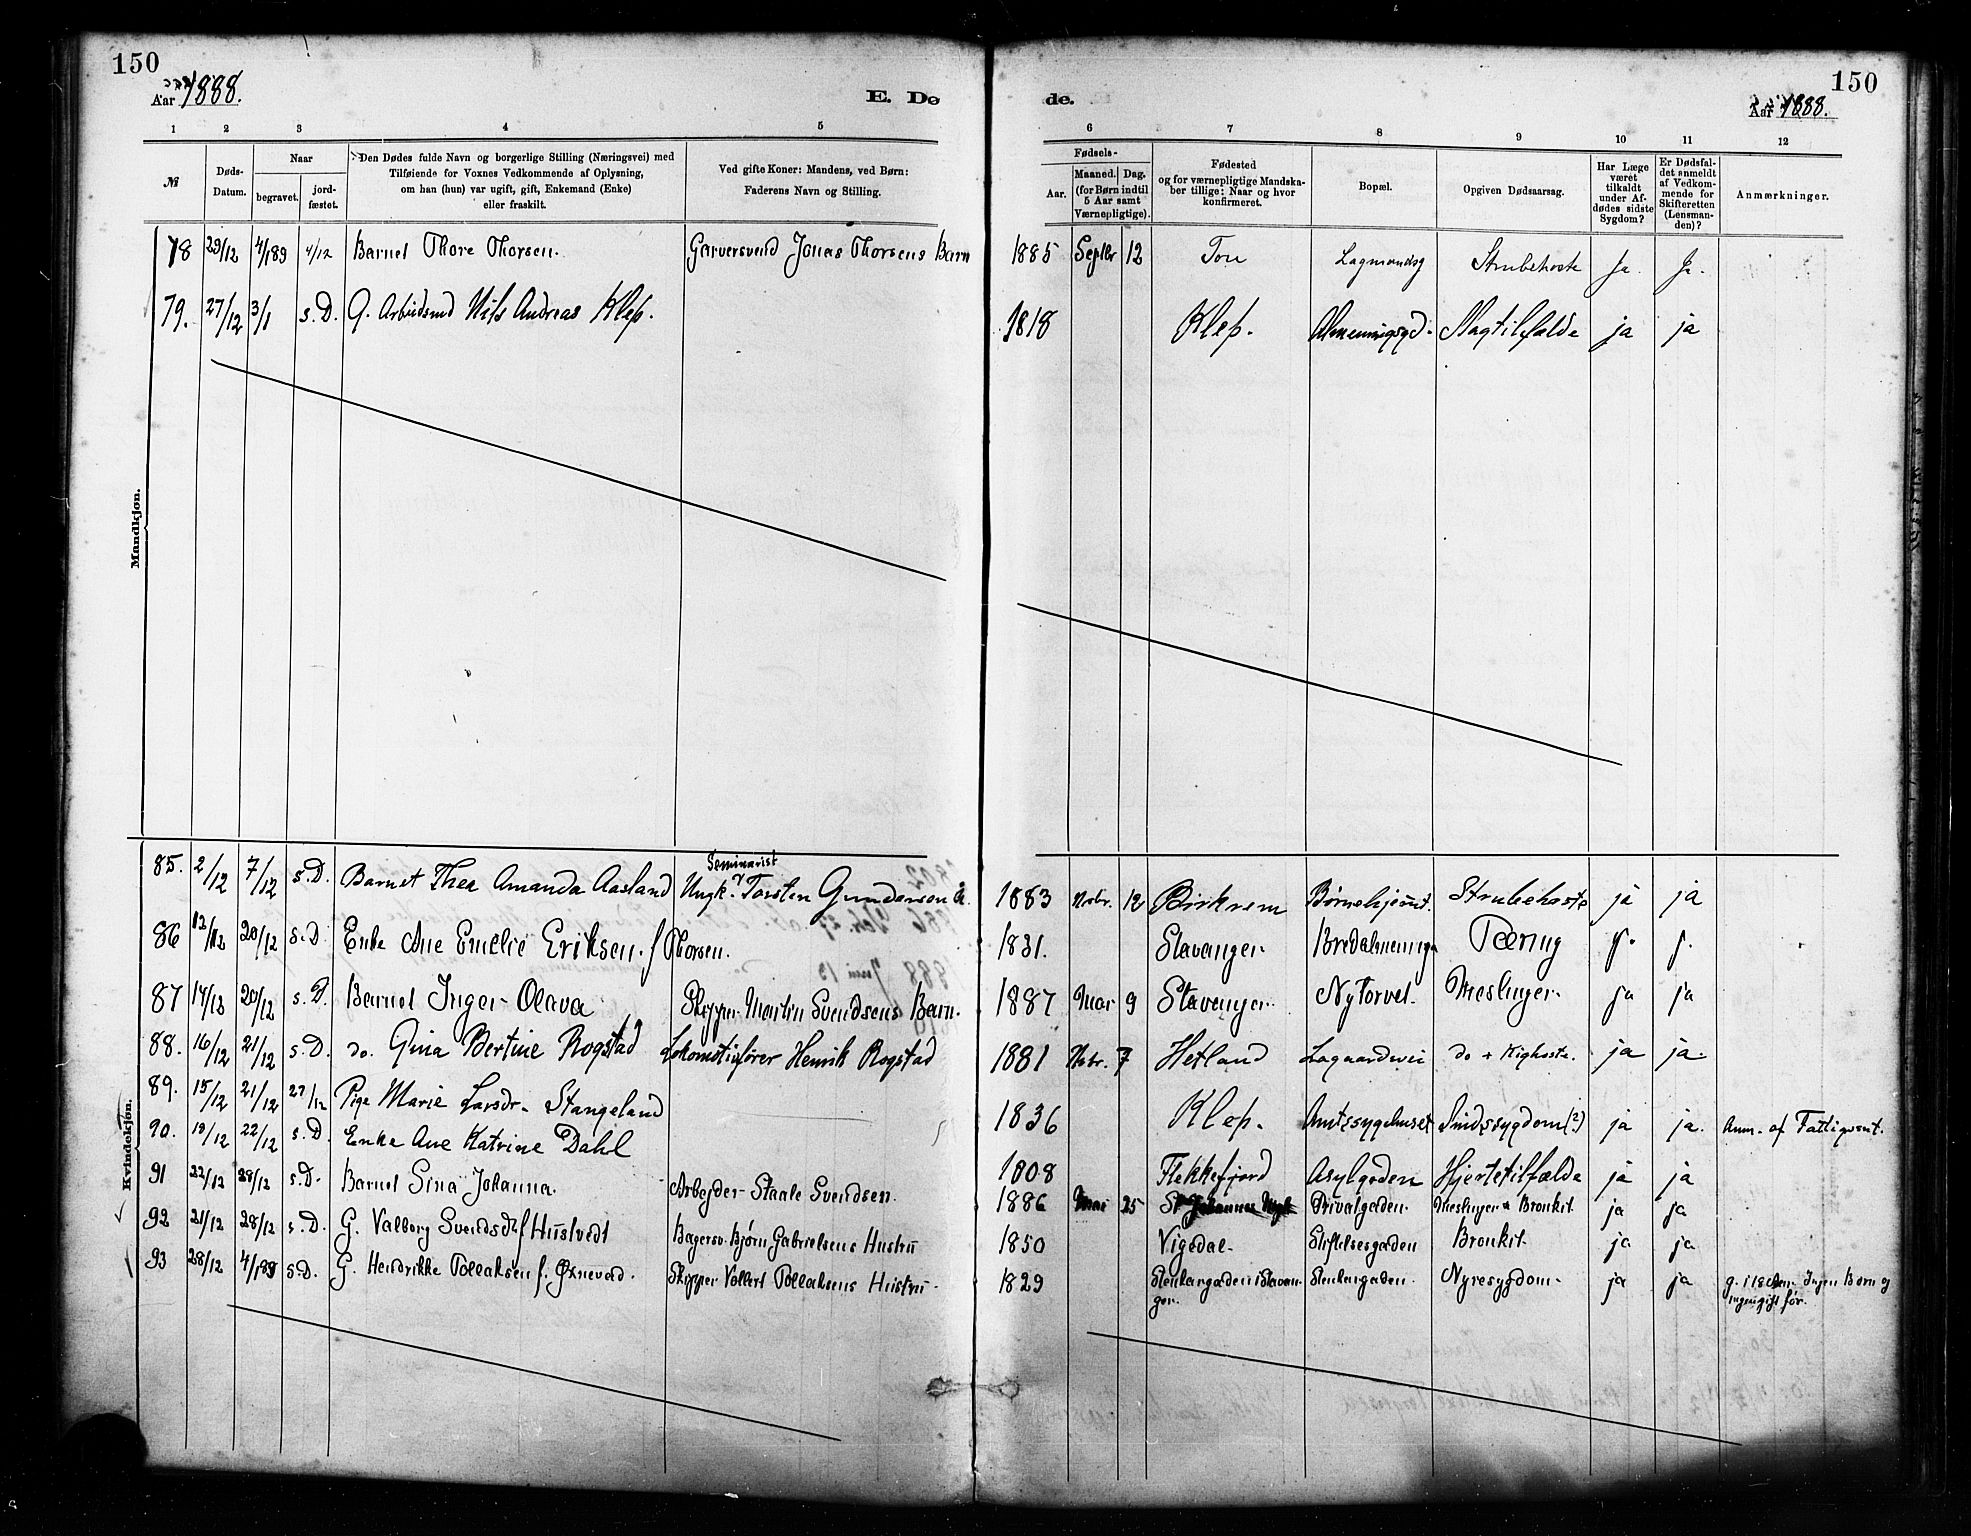 150
Aar 1888.
E. Dø
de.
150
Aar 1888.
1 2 3 4 5 6 7 8 9 10 11 12
№
Døds-
Datum.
Naar
begravet.
jord-
fæstet.
Den Dødes fulde Navn og borgerlige Stilling (Næringsvei) med
Tilføiende for Voxnes Vedkommende af Oplysning,
om han (hun) var ugift, gift, Enkemand (Enke)
eller fraskilt.
Ved gifte Koner: Mandens, ved Børn:
Faderens Navn og Stilling.
Fødsels-
Aar.
Maaned. Dag.
(for Børn indtil
5 Aar samt
Værnepligtige).
Fødested
og for værnepligtige Mandska-
ber tillige: Naar og hvor
konfirmeret.
Bopæl.
Opgiven Dødsaarsag.
Har Læge
været
tilkaldt
under Af-
dødes sidste
Sygdom?
Er Dødsfal-
det anmeldt
af Vedkom-
mende for
Skifteretten
(Lensman-
den)?
Anmærkninger.
Mandkjøn.
78 29/12 4/189 4/12 Barnet Thore Thorsen. Garversvend Jonas Thorsens Barn 1885 Septbr 12 Tou Lagmandsg Strubehoste Ja. Ja.
79. 27/12 3/1 s.D. G. Arbeidsmd Nils Andreas Klep. 1818 Klep. Almenningsgd. Slagtilfælde ja ja
Kvindekjøn.
Seminarist
85. 2/12 7/12 s.D. Barnet Thea Amanda Aasland Ungk. Torsten Gundersen 1883 Novbr. 12 Birkrem Børnehjemt. Strubehoste ja ja
86 12/12 20/12 s.D. Enke Ane Emelie Eriksen f Thorsen. 1831. Stavanger Bredalmenning Tæring
87 14/12 20/12 s.D. Barnet Inger Olava Skipper Martin Svendsens Barn. 1887 Mar 9 Stavanger Nytorvet. Meslinger. ja ja
88. 16/12 21/12 s.D. do. Gina Bertine Rogstad Lokomotivfører Henrik Rogstad 1881 Novbr. 7 Hetland Lagaardsvei do + Kighoste. ja ja.
89. 15/12 21/12 27/12 Pige Marie Larsdr. Stangeland 1836 Klep. Amtssygehuset Sindssygdom (?) ja ja. Anm. af Fattigvæsnt.
90. 19/12 22/12 s.D. Enke Ane Katrine Dahl 1808 Flekkefjord Asylgaden Hjertetilfælde ja ja
91 22/12 28/12 s.D. Barnet Sina Johanna. Arbejder Staale Svendsen. 1886 Mai 25 Privatgaden. Meslinger & Bronkit. ja ja
92 21/12 28/12 s.D. G. Valborg Svendsdt f Hustvedt Bagersv. Bjørn Gabrielsens Hustru 1850 Vigedal Stiftelsesgaden Bronkit. ja ja
93 28/12 4/189 s.D. G. Hendrikke Tollaksen f. Øxnevad. Skipper Vallert Tollaksens Hustru 1829 Stenkargaden i Stavan- Stenkargaden. Nyresygdom. ja ja g. Ingen Børn og
ger. ingen gift før.